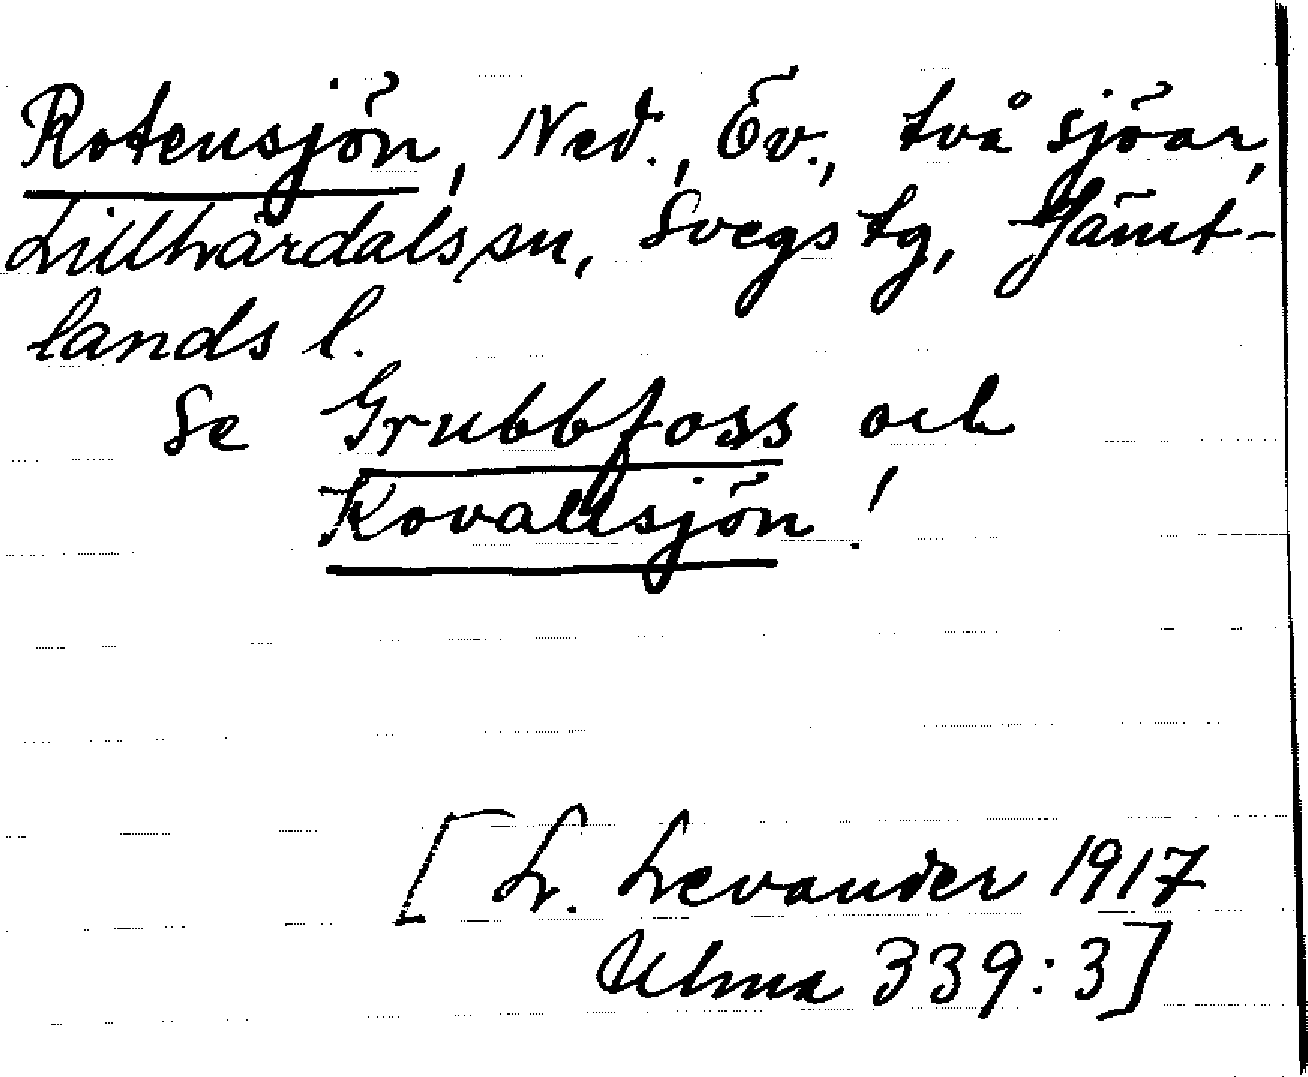 Rotensjön, Ned., Öv., två sjöar,
Lillhärdals sn, Svegs tg, Jämt-
lands l.
Se Grubbfoss och
Kovallsjön!
[L. Levander 1917
Ulma 339:3]